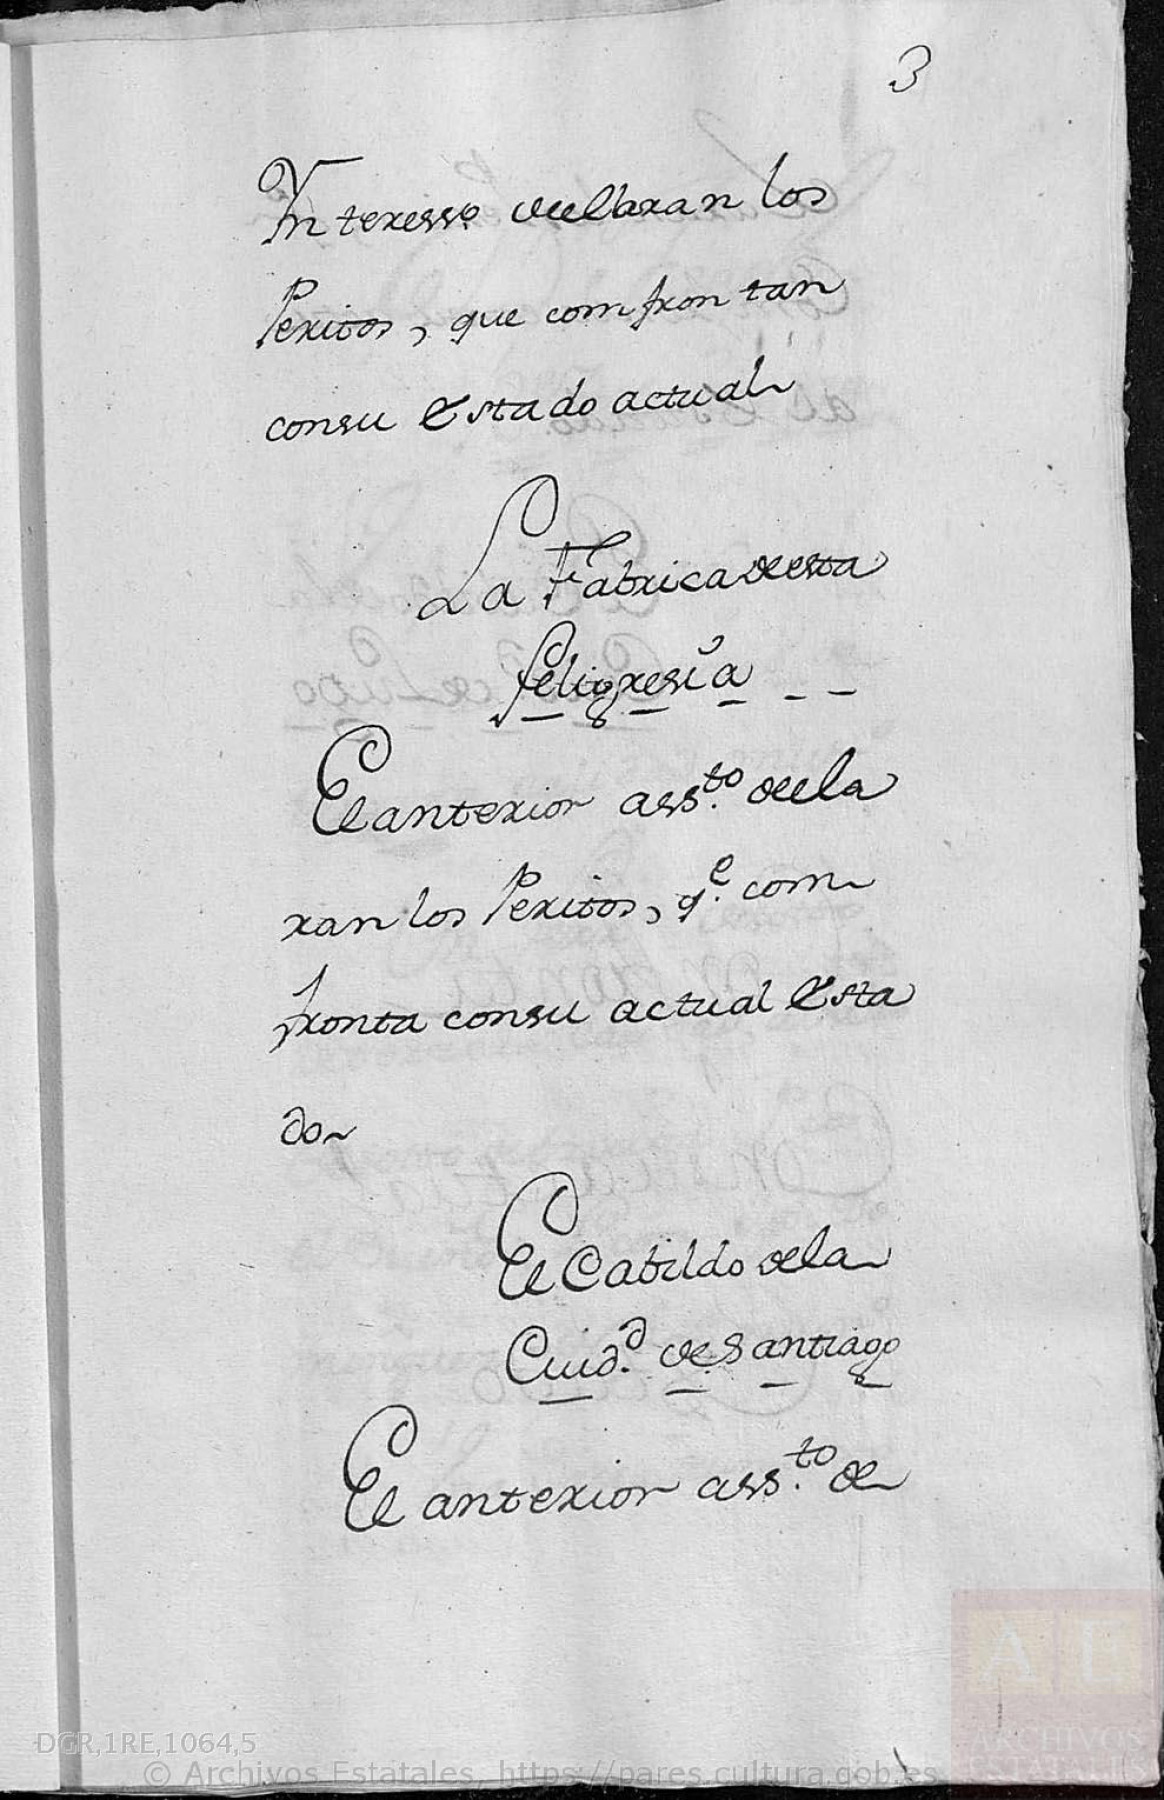 3
Interesso declaran los
Peritos, que comfrontan
consu Estado actual
La Fabrica de esta
feligresía - -
El anterior ass.to decla
ran los Peritos, q.e com
fronta consu actual Esta
do
El Cabildo dela
Cuid.d de Santiago
El anterior ass.to de
DGR,1RE,1064,5
© Archivos Estatales, https://pares.cultura.gob.es
AE
ARCHIVOS
ESTATALES